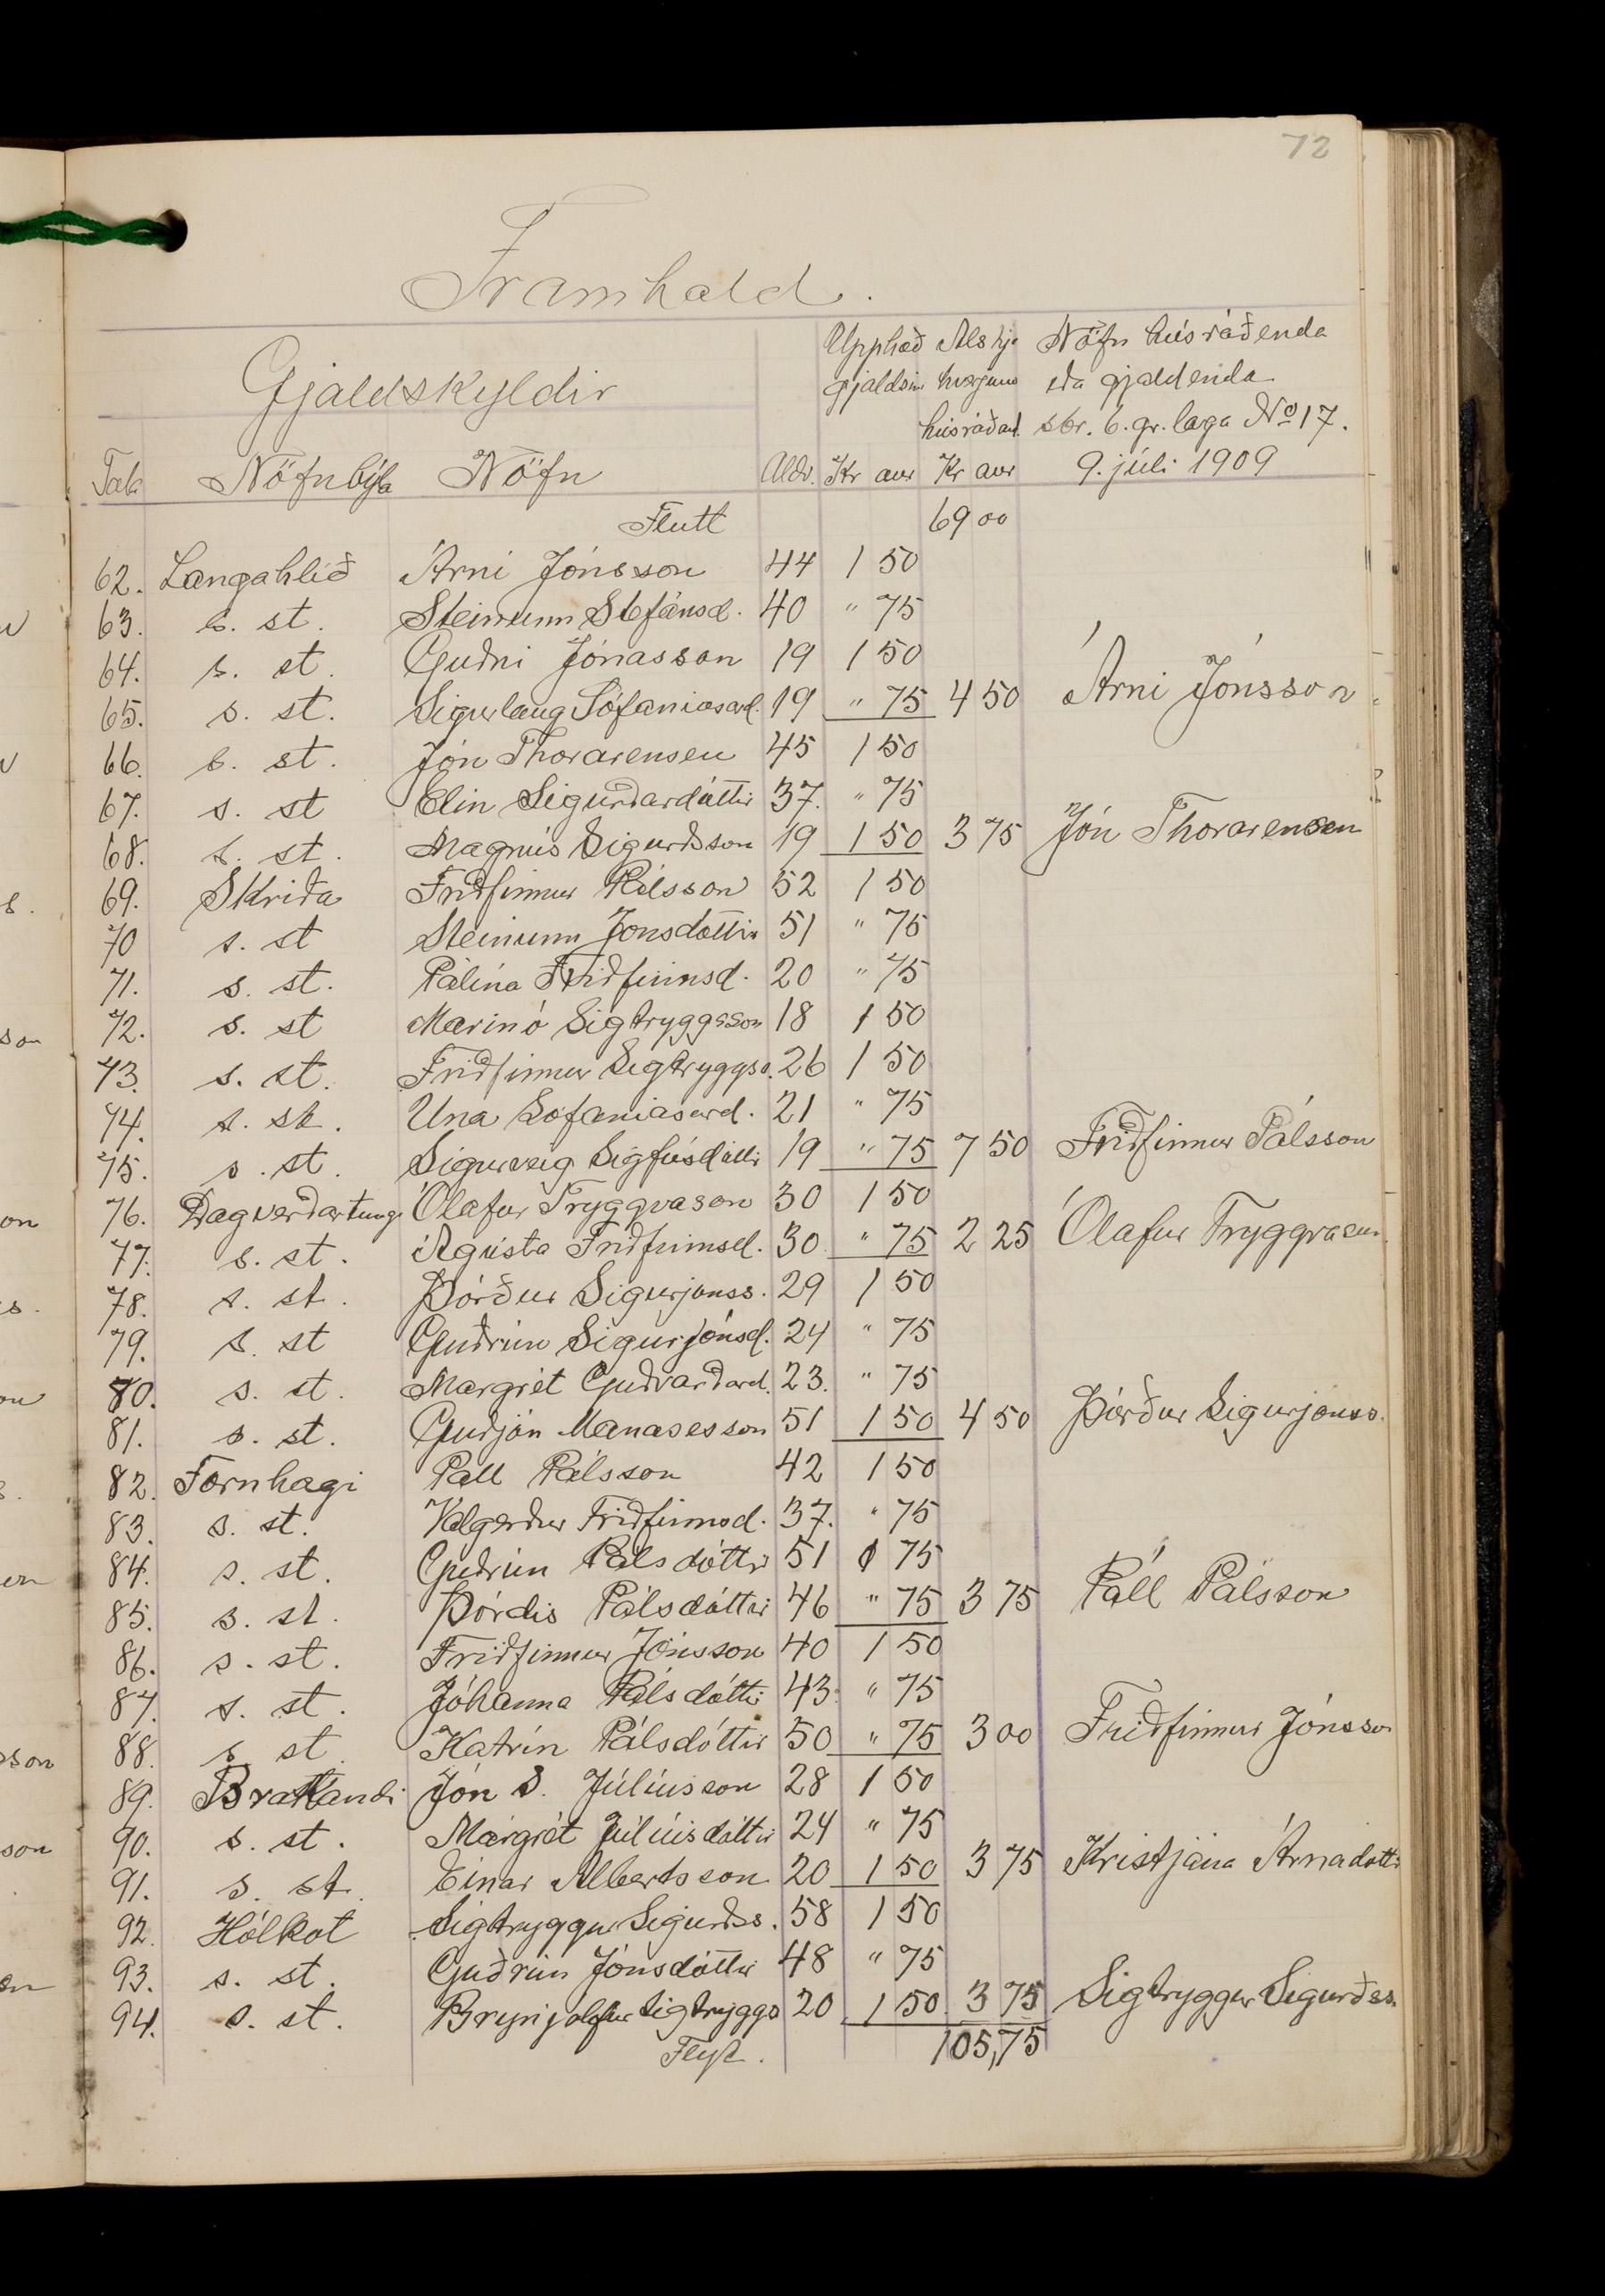 72
Framhald.
Gjaldskyldir
Upphæð Als hjá Nöfn húsráðenda
gjaldsins hverjum eða gjaldenda
húsráðand. sbr. 6. gr. laga No 17.
Tala Nöfn býla Nöfn Aldr. Kr aur Kr aur 9. júlí 1909
Flutt 69 00
62. Langahlíð Árni Jónsson 44 1 50
63. s. st. Steinunn Stefánsd. 40 " 75
64. s. st. Guðni Jónasson 19 1 50
65. s. st. Sigurlaug Sófaníasard. 19 " 75 4 50 Árni Jónsson
66. s. st. Jón Thorarensen 45 1 50
67. s. st Elin Sigurðardóttir 37. " 75
68. s. st. Magnús Sigurðsson 19 1 50 3 75 Jón Thorarensen
69. Skriða Friðfinnur Pálsson 52 1 50
70 s. st Steinunn Jónsdóttir 51 " 75
71. s. st. Pálína Friðfinnsd. 20 " 75
72. s. st Marinó Sigtryggsson 18 1 50
73. s. st. Friðfinnur Sigtryggss. 26 1 50
74. s. st. Una Sofaniasard. 21 " 75
75. s. st. Sigurveig Sigfúsdóttir 19 " 75 7 50 Friðfinnur Pálsson
76. Dagverðartunga Ólafur Tryggvason 30 1 50
77. s. st. Ágústa Friðfinnsd. 30 " 75 2 25 Ólafur Tryggvason
78. s. st. Þórður Sigurjónss. 29 1 50
79. s. st Guðrún Sigurjónsd. 24 " 75
80. s. st. Margrét Guðvarðard. 23. " 75
81. s. st. Guðjón Manasesson 51 1 50 4 50 Þórður Sigurjónss.
82. Fornhagi Páll Pálsson 42 1 50
83. s. st. Valgerður Friðfinnsd. 37. " 75
84. s. st. Guðrún Pálsdóttir 51 0 75
85. s. st. Þórdís Pálsdóttir 46 " 75 3 75 Páll Pálsson
86. s. st. Friðfinnur Jónsson 40 1 50
87. s. st. Jóhanna Pálsdóttir 43. " 75
88. s st Katrín Pálsdóttir 50 " 75 3 00 Friðfinnur Jónsson
89. Brakandi Jón S. Júlíusson 28 1 50
90. s. st. Margrét Júlíusdóttir 24 " 75
91. s. st. Einar Albertsson 20 1 50 3 75 Kristjána Árnadóttir
92. Hólkot Sigtryggur Sigurðss. 58 1 50
93. s. st. Guðrún Jónsdóttir 48 " 75
94. s. st. Brynjolfur Sigtryggs 20 1 50 3 75 Sigtryggur Sigurðss.
Flyt. 105,75